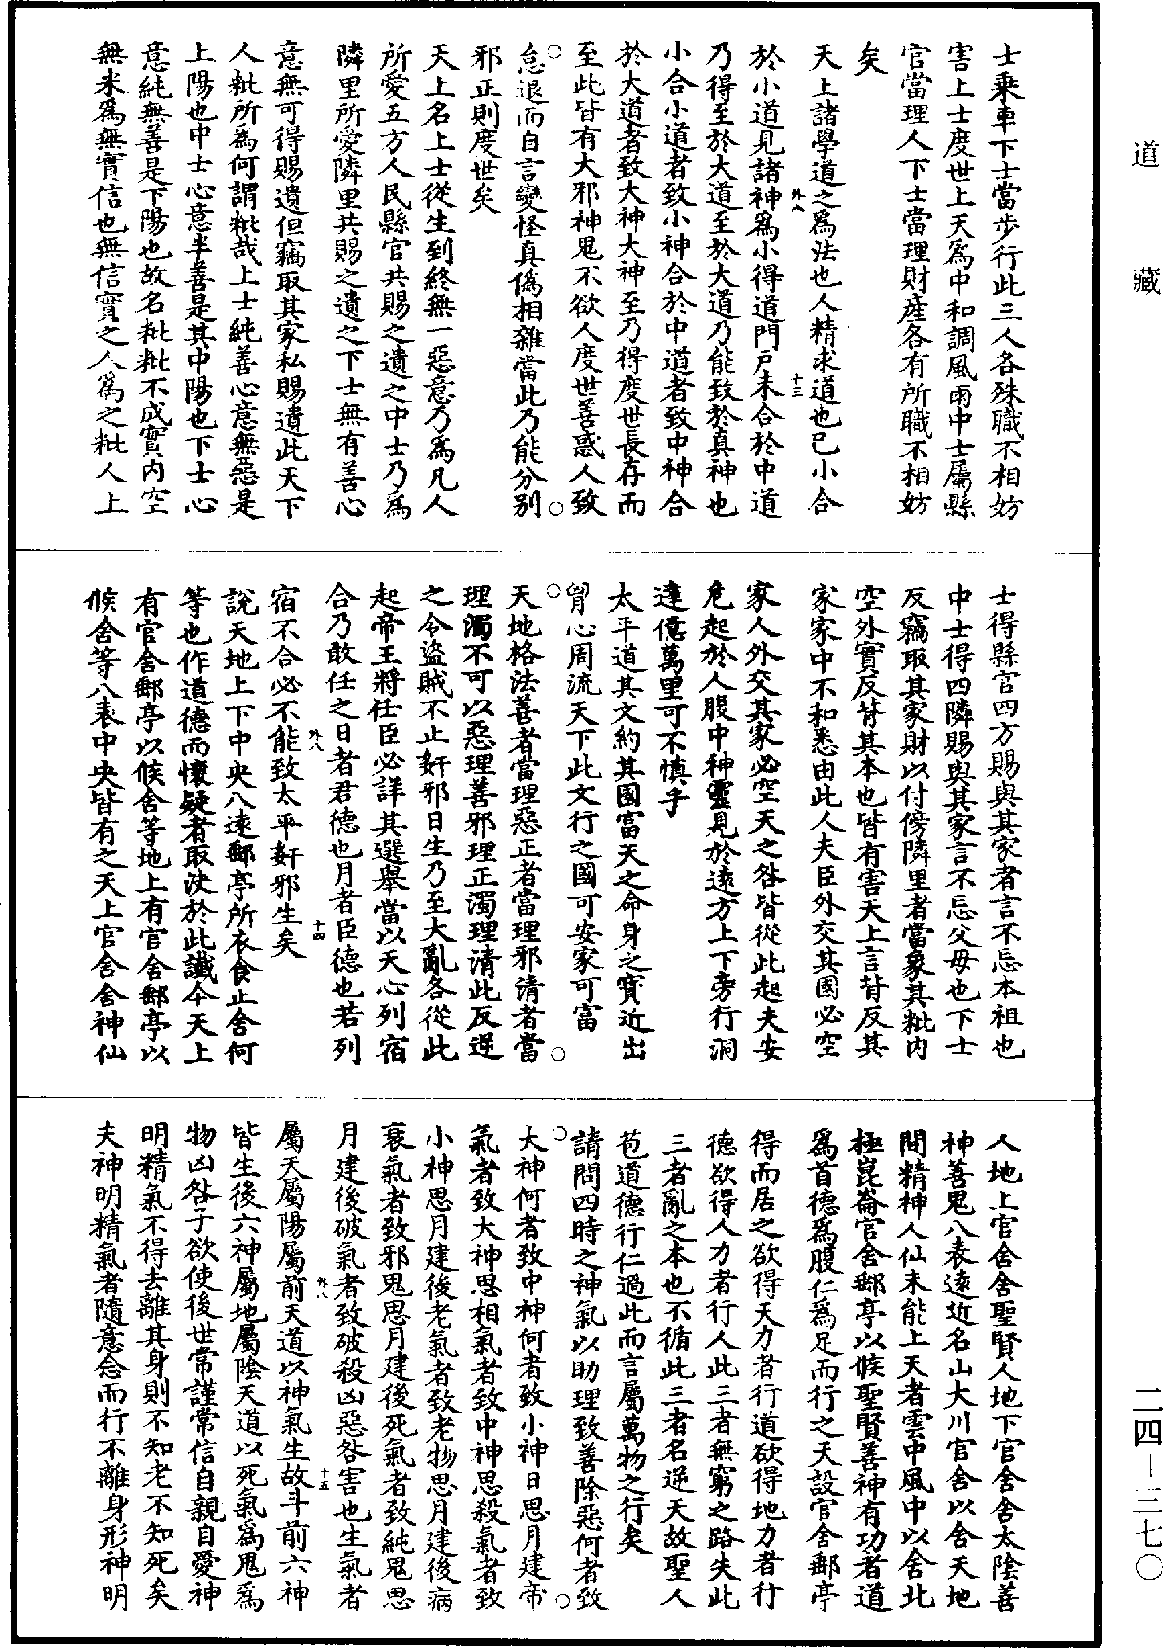 道藏
士乘車下士當步行此三人各殊職不相妨
害上士度世上天爲中和調風雨中士屬縣
官當理人下士當理財產各有所職不相妨
矣
天上諸學道之爲法也人精求道也已小合
外八
十三
於小道見諸神爲小得道門戶未合於中道
乃得至於大道至於大道乃能致於真神也
小合小道者致小神合於中道者致中神合
於大道者致大神大神至乃得度世長存而
至此皆有大邪神鬼不欲人度世善惑人致
怠退而自言變怪真僞相雜當此乃能分别
邪正則度世矣
天上名上士從生到終無一惡意乃爲凡人
所愛五方人民縣官共賜之遺之中士乃爲
隣里所愛隣里共賜之遺之下士無有善心
意無可得賜遺但竊取其家私賜遺此天下
人粃所為何謂粃哉上士純善心意無惡是
上陽也中士心意半善是其中陽也下士心
意純無善是下陽也故名粃粃不成實内空
無米爲無實信也無信實之人爲之粃人上
士得縣官四方賜與其家者言不忘本祖也
中士得四隣賜與其家言不忌父母也下士
反竊取其家財以付傍隣里者當象其粃内
空外實反背其本也皆有害天上言背反其
家家中不和悉由此人夫臣外交其國必空
家人外交其家必空天之咎皆從此起夫安
危起於人腹中神靈見於遠方上下旁行洞
達億萬里可不慎乎
太平道其文約其國富天之命身之寳近出
胷心周流天下此文行之國可安家可富
天地格法善者當理惡正者當理邪清者當
理濁不可以惡理善邪理正濁理清此反逆
之令盜賊不止姦邪日生乃至大亂各從此
起帝王將任臣必詳其選舉當以天心列宿
合乃敢任之日者君德也月者臣德也若列
外八
十四
宿不合必不能致太平姦邪生矣
說天地上下中央八遠郵亭所衣食止舍何
等也作道德而懷疑者取决於此讖今天上
有官舍郵亭以候舍等地上有官舍郵亭以
候舍等八表中央皆有之天上官舍舍神仙
人地上官舍舍聖賢人地下官舍舍太陰善
神善鬼八表遠近名山大川官舍以舍天地
間精神人仙未能上天者雲中風中以舍北
極崑崙官舍郵亭以候聖賢善神有功者道
爲首德爲腹仁爲足而行之天設官舍郵亭
得而居之欲得天力者行道欲得地力者行
德欲得人力者行人此三者無窮之路失此
三者亂之本也不循此三者名逆天故聖人
苞道德行仁過此而言屬萬物之行矣
請問四時之神氣以助理致善除惡何者致
大神何者致中神何者致小神日思月建帝
氣者致大神思相氣者致中神思殺氣者致
小神思月建後老氣者致老物思月建後病
衰氣者致邪鬼思月建後死氣者致純鬼思
月建後破氣者致破殺凶惡咎害也生氣者
外八
十五
屬天屬陽屬前天道以神氣生故斗前六神
皆生後六神屬地屬陰天道以死氣爲鬼爲
物凶咎子欲使後世常謹常信自親自愛神
明精氣不得去離其身則不知老不知死矣
夫神明精氣者隨意念而行不離身形神明
二四－三七〇